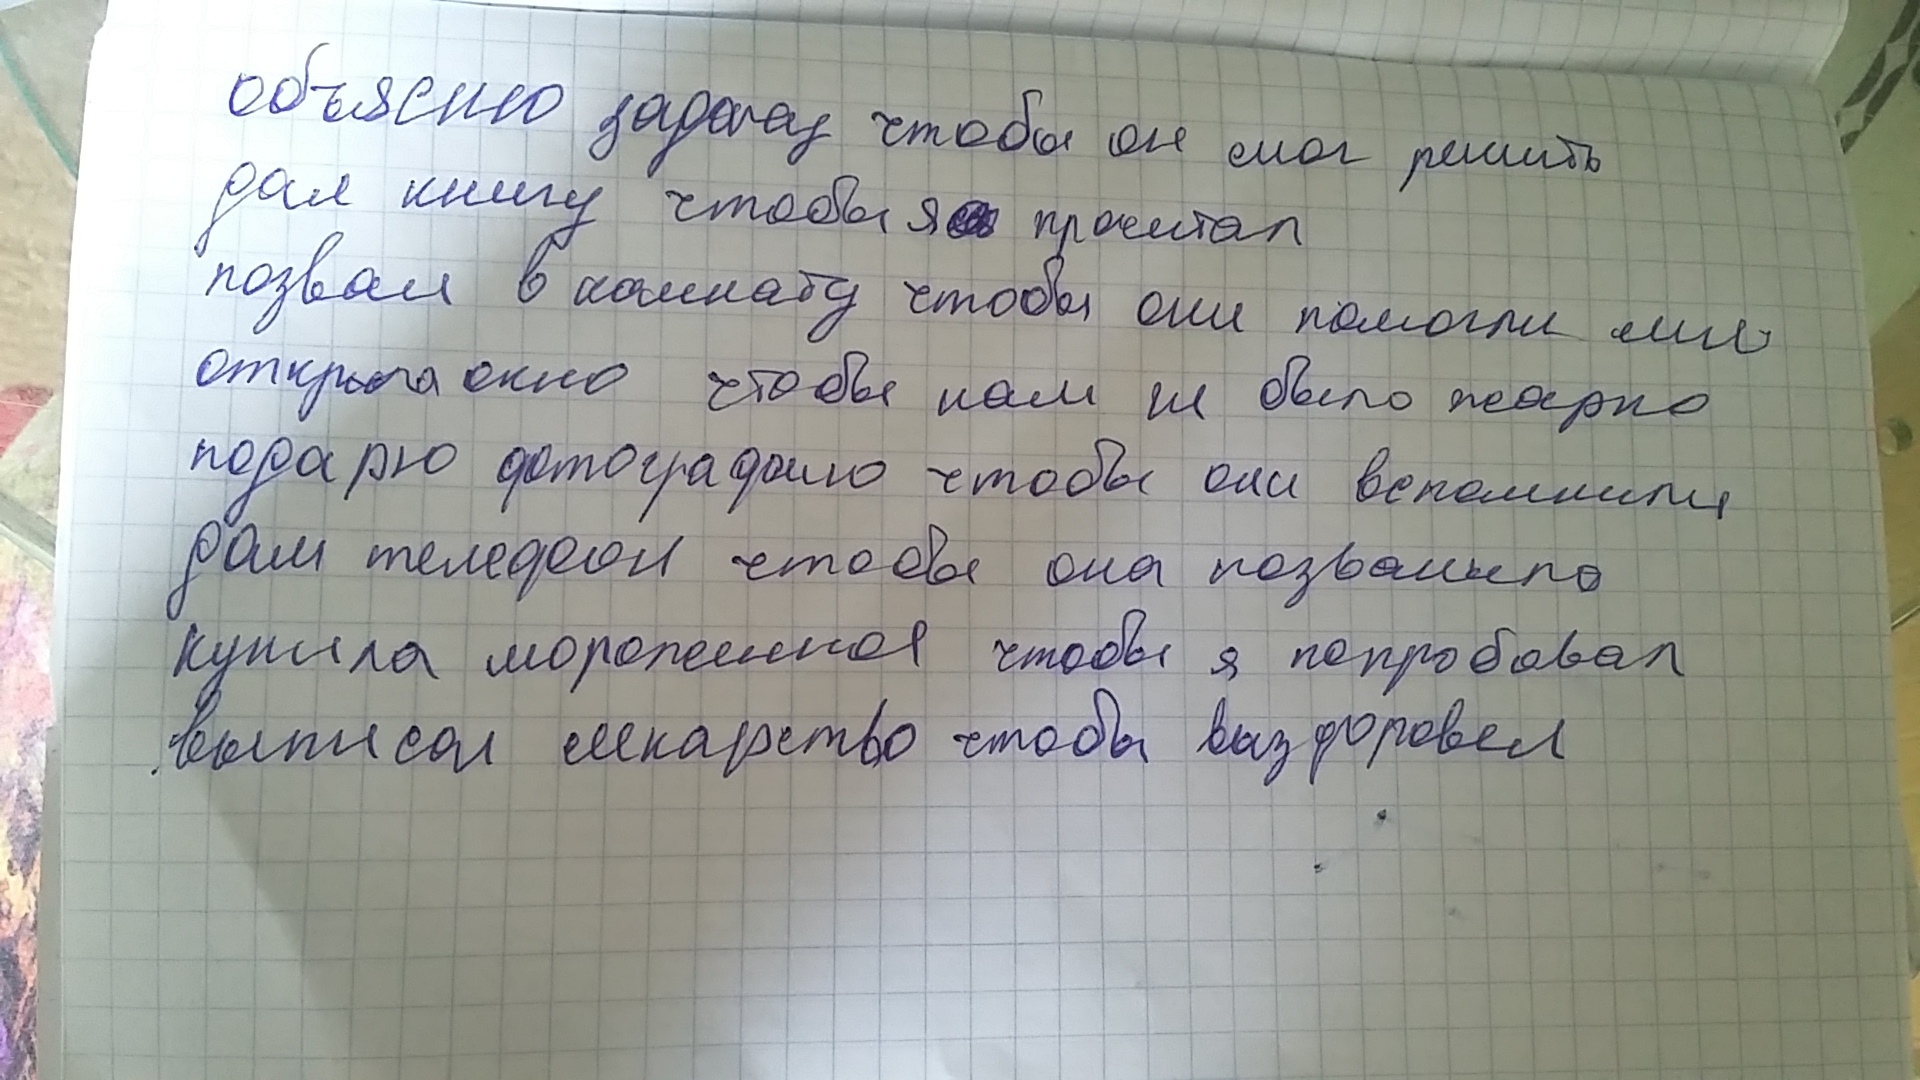 объясню задачу чтобы он смог решить
дал книгу чтобы я прочитал
позвал в комнату чтобы они помогли мне
открыла окно чтобы нам не было жарко
подарю фотографию чтобы они вспомнили
дам телефон чтобы она позвонила
купила мороженное чтобы я попробовал
выписал лекарство чтобы выздоровел